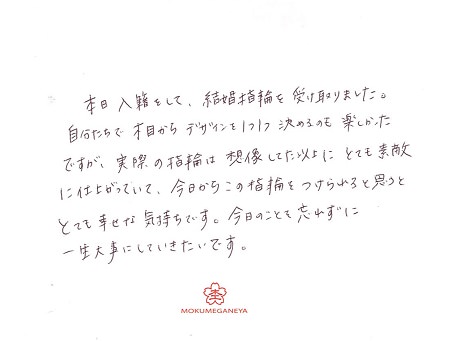 本日入籍をして、結婚指輪を受け取りました。
自分たちで木目からデザインを1つ1つ決めるのも楽しかった
ですが、実際の指輪は想像してた以上にとても素敵
に仕上がっていて、今日からこの指輪をつけられると思うと
とても幸せな気持ちです。今日のことも忘れずに
一生大事にしていきたいです。
MOKUMEGANEYA